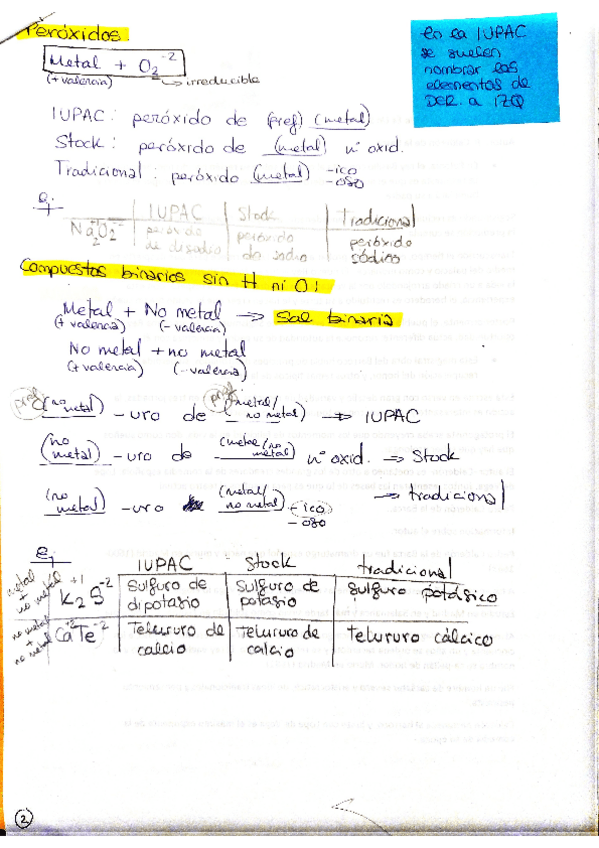 Peróxidos.
en la IUPAC
se suelen
nombrar los
elementos de
DER. a IZQ
Metal + O₂⁻²
(+ valencia) ↳ irreducible
IUPAC: peróxido de (pref) (metal)
Stock: peróxido de (metal) nº oxid.
Tradicional: peróxido (metal) -ico
-oso
Ej
IUPAC | Stock | Tradicional
Na₂⁺¹O₂⁻ | peróxido de disodio | peróxido de sodio | peróxido sódico
Compuestos binarios sin H ni O:
Metal + No metal → Sal binaria
(+ valencia) (- valencia)
No metal + no metal
(+ valencia) (- valencia)
pref (no metal) -uro de pref (metal/no metal) → IUPAC
(no metal) -uro de (metal/no metal) nº oxid. → Stock
(no metal) -uro (metal/no metal) -ico → tradicional
-oso
Ej
IUPAC | Stock | tradicional
metal + no metal | K₂⁺¹S⁻² | Sulfuro de dipotasio | Sulfuro de potasio | sulfuro potásico
no metal + no metal | Ca⁺²Te⁻² | Telururo de calcio | Telururo de calcio | telururo cálcico
2